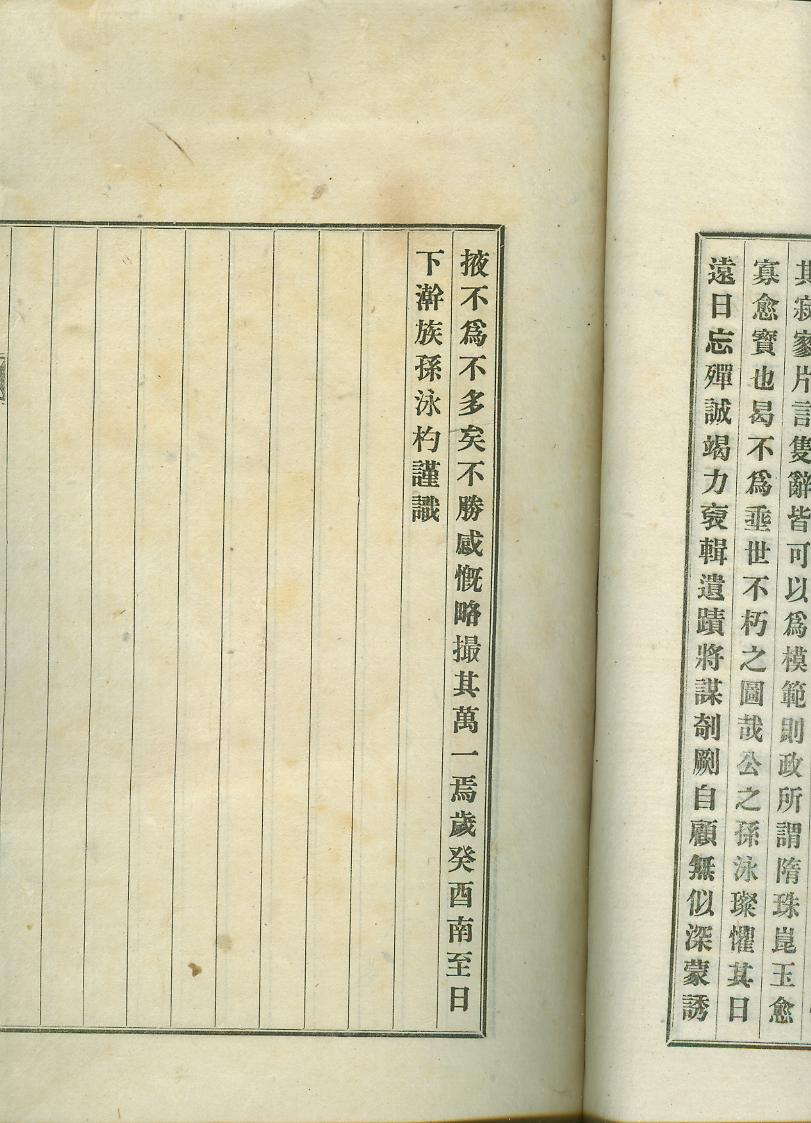 其寂寥片言隻辭皆可以爲模範則政所謂隋珠崑玉愈
寡愈寶也曷不爲垂世不朽之圖哉公之孫泳璨懼其日
遠日忘殫誠竭力裒輯遺蹟將謀剞劂自顧無似深蒙誘
掖不爲不多矣不勝感慨略撮其萬一焉歲癸酉南至日
下澣族孫泳杓謹識